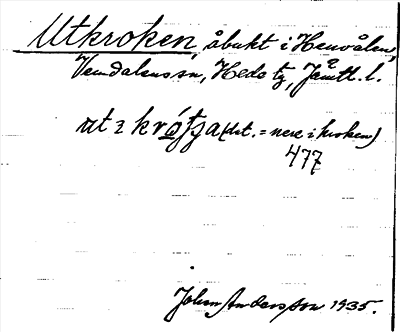 Utkroken, åbukt i Henvålens,
Vemdalens sn, Hede tg, Jämtl. l.
ut 2 krǿtʒa (dat. = nere i kroken)
477
Johan Andersson 1935.